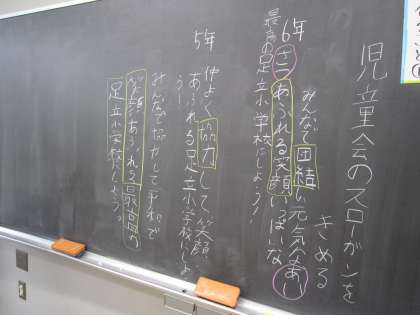 児童会のスローガンを
きめる
6年
みんなで団結し元気なあい
さつあふれる笑顔いっぱいな
最高の足立小学校にしよう!
5年
仲よく協力して笑顔
あふれる足立小学校にしよ
う!
みんなで協力して平和で
笑顔あふれる最高の
足立小学校にしよう。